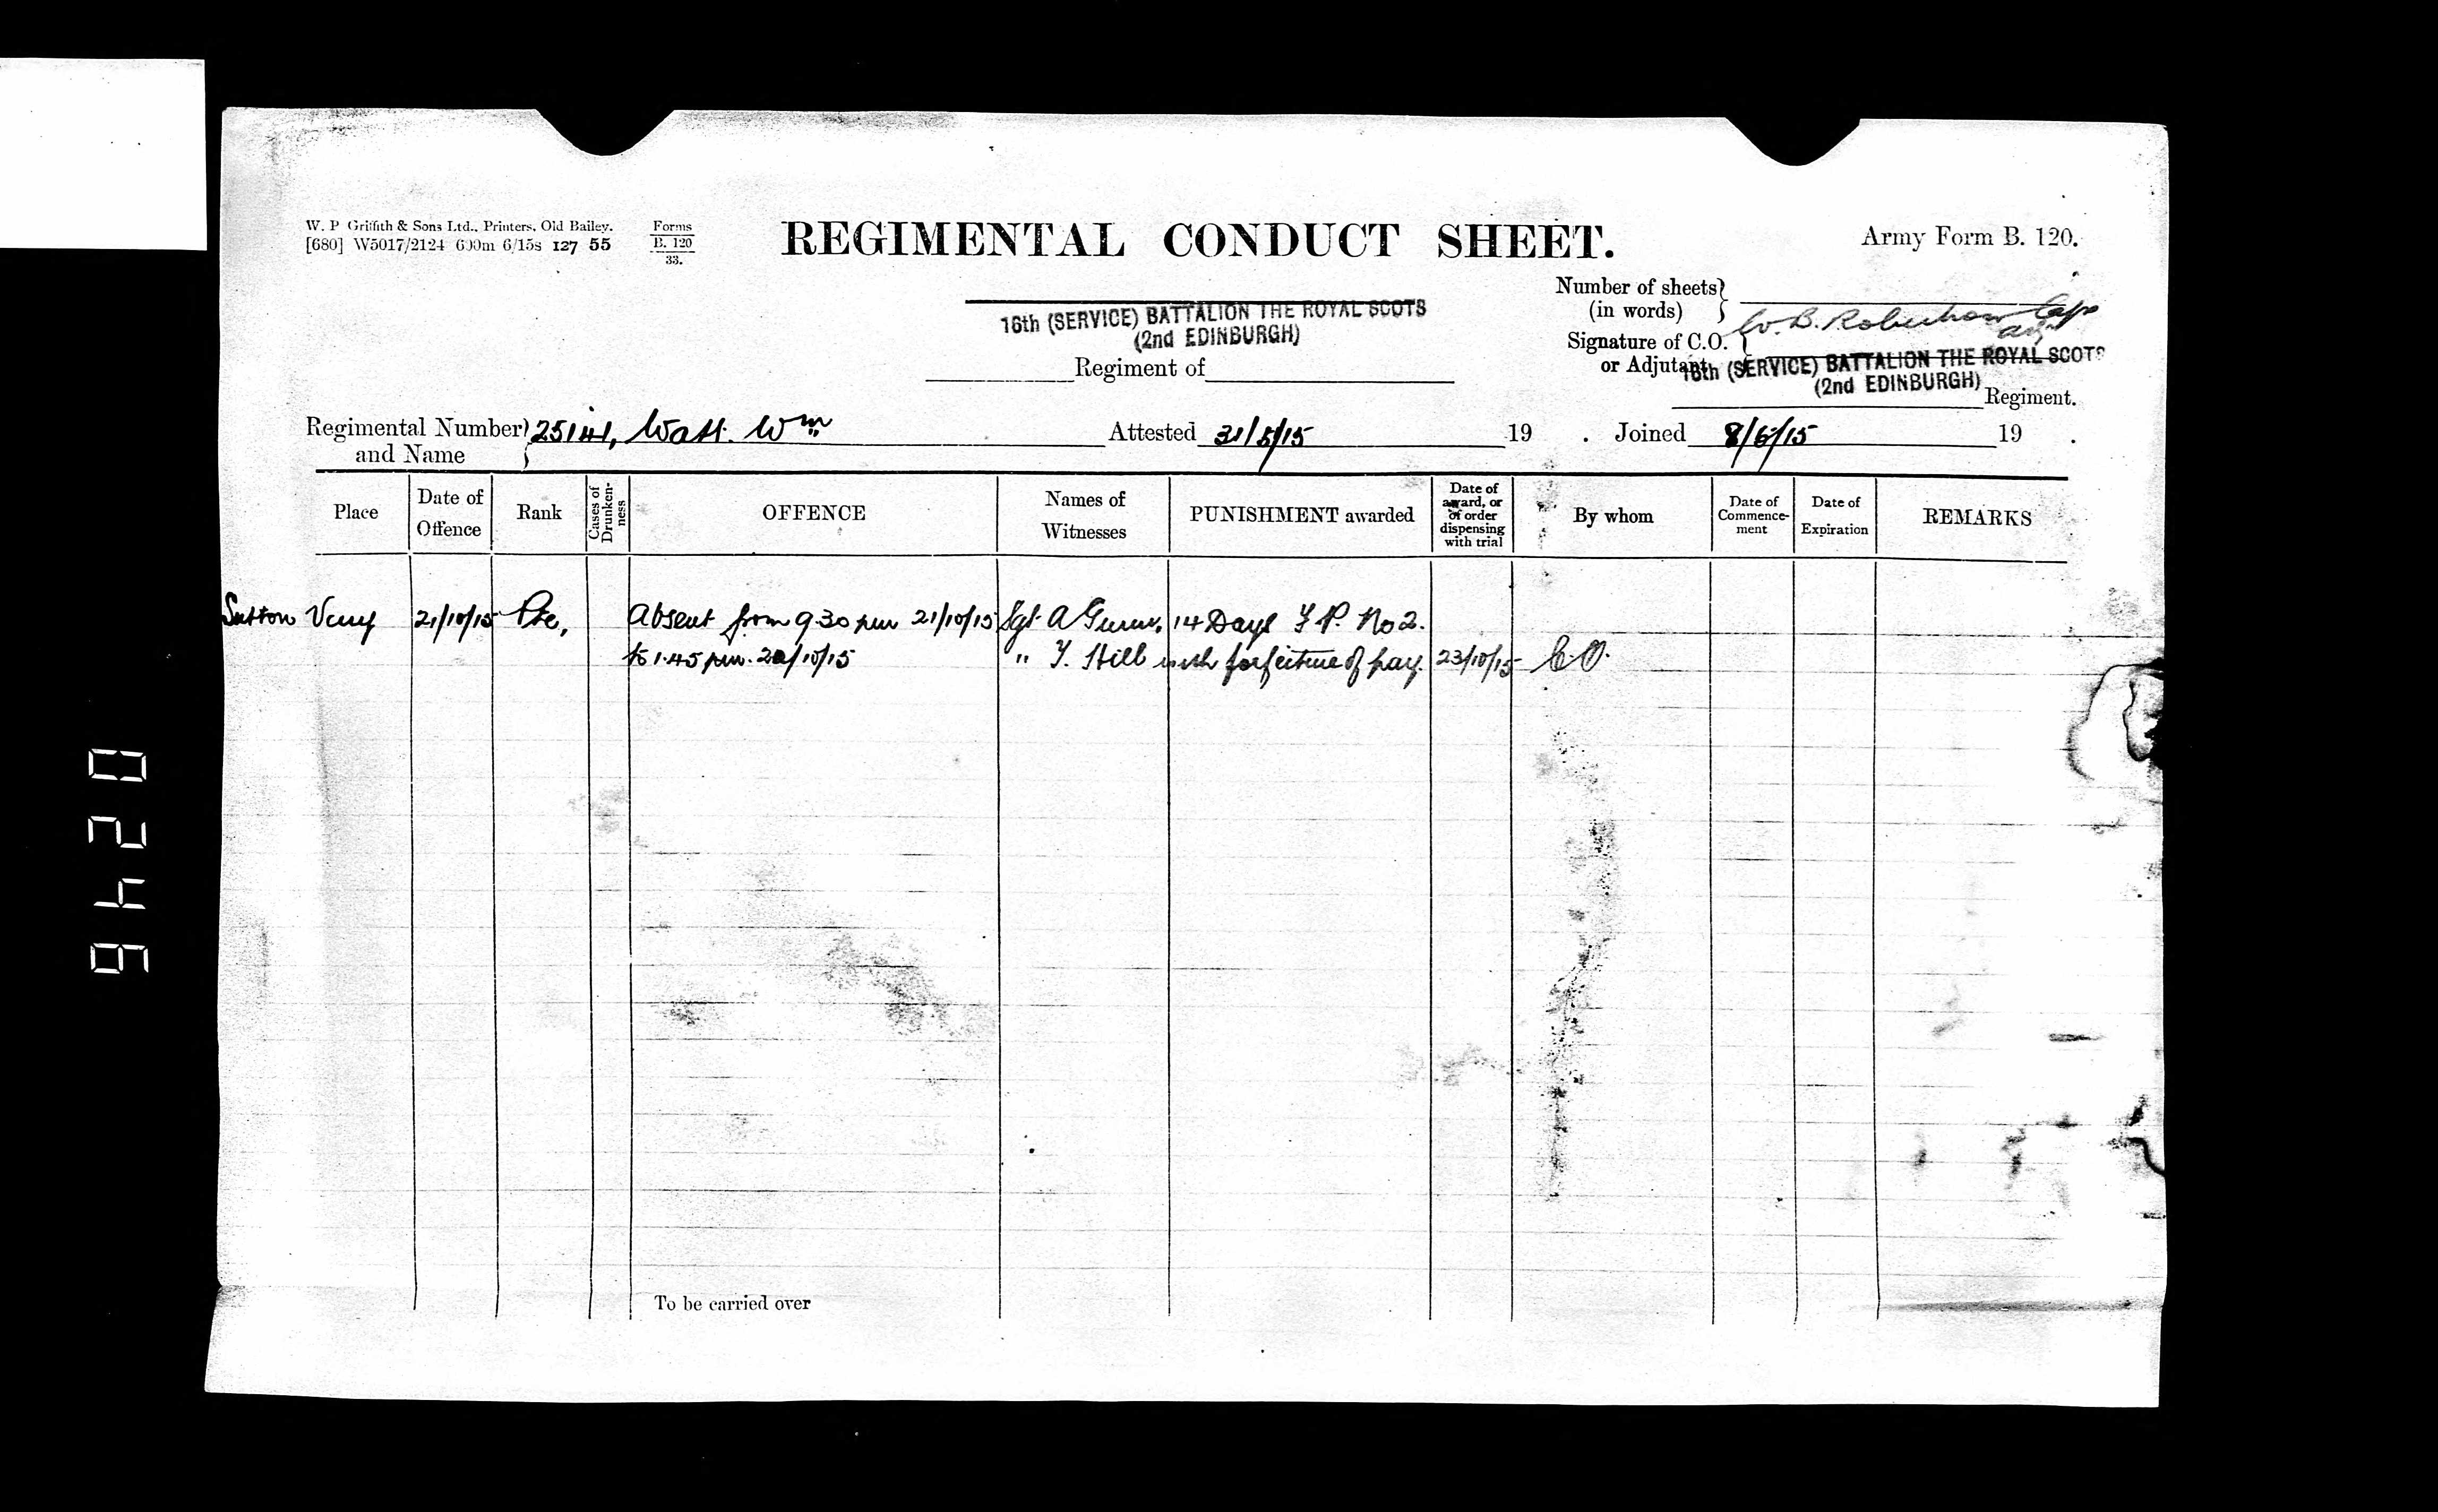 W. P Griffith & Sons Ltd., Printers, Old Bailey.
[680] W5017/2124 600m 6/15s 127 55
Forms
B. 120
33.
REGIMENTAL CONDUCT SHEET.
Army Form B. 120.
Number of sheets
(in words)
16th (SERVICE) BATTALION THE ROYAL SCOTS
(2nd EDINBURGH)
Regiment of
Signature of C.O.
or Adjutant
W. B. Robertson Capt
16th (SERVICE) BATTALION THE ROYAL SCOTS
(2nd EDINBURGH)
Regiment.
Regimental Number
and Name
25141, Watt. Wm
Attested 31/5/15 19 . Joined 8/6/15 19 .
Place
Date of
Offence
Rank
Cases of
Drunken-
ness
OFFENCE
Names of
Witnesses
PUNISHMENT awarded
Date of
award, or
of order
dispensing
with trial
By whom
Date of
Commence-
ment
Date of
Expiration
REMARKS
Sutton Veny 21/10/15 Pte, Absent from 9.30 pm 21/10/15 Sgt A Gunn, 14 Days F. P. No 2.
to 1.45 pm. 22/10/15 " Y. Hill with forfeiture of pay. 23/10/15 C.O.
To be carried over
0246